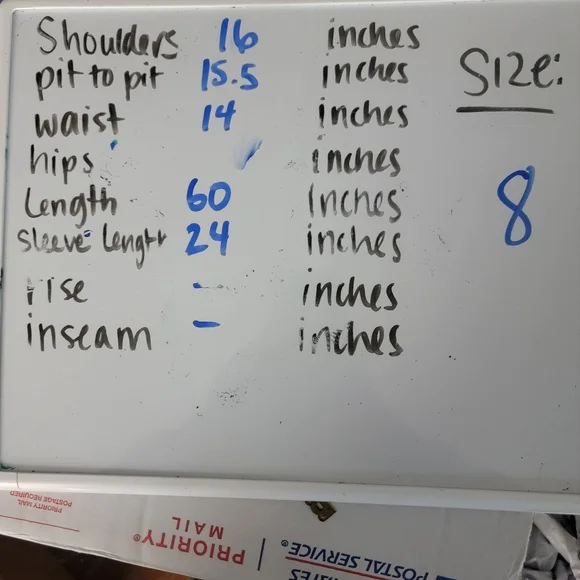 Shoulders 16 inches
pit to pit 15.5 inches
Size:
waist 14 inches
hips inches
8
Length 60 Inches
sleeve length 24 inches
rise - inches
inseam - inches
PRIORITY MAIL
POSTAGE REQUIRED
PRIORITY® MAIL
POSTAL SERVICE®